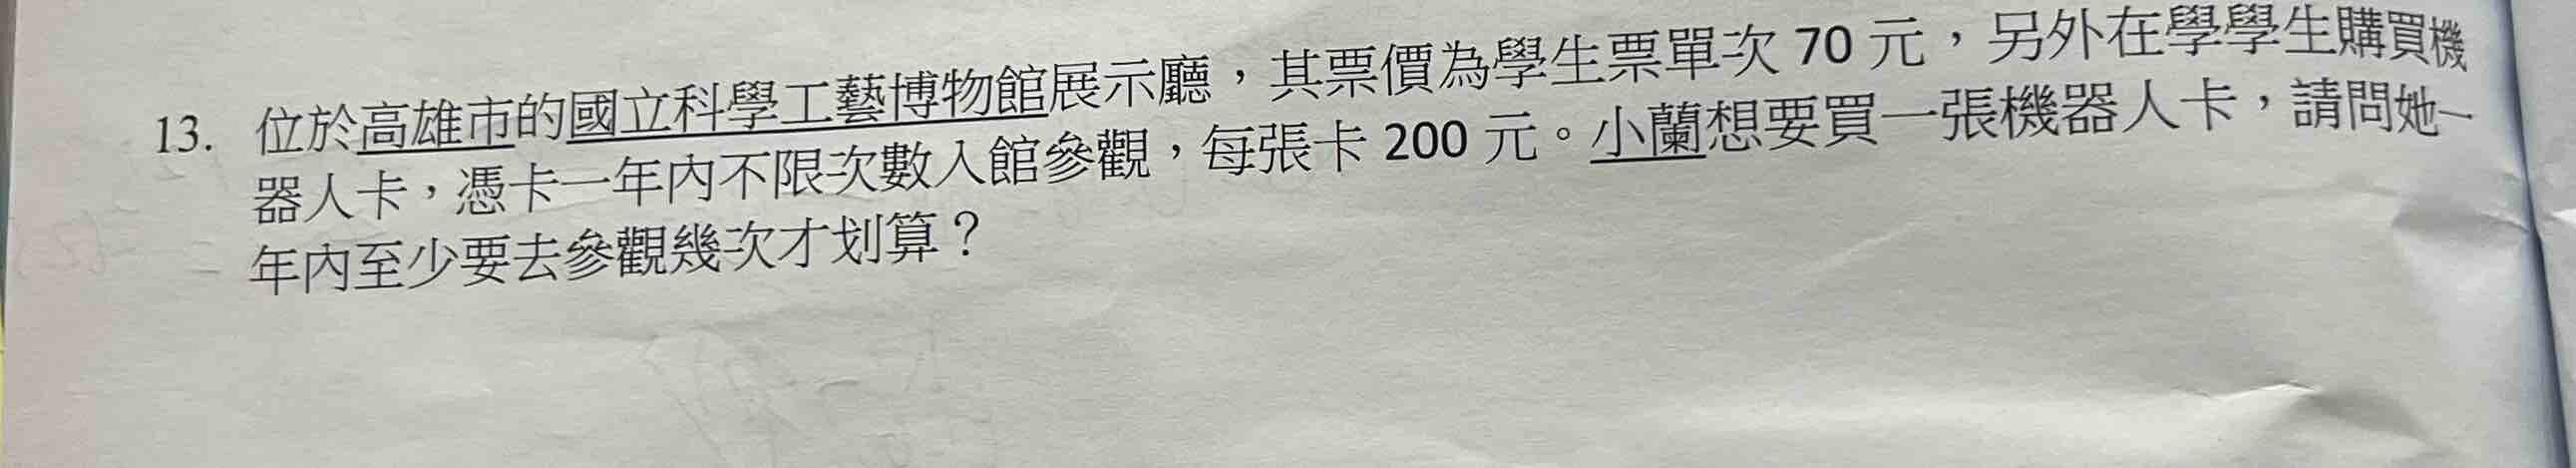 13. 位於高雄市的國立科學工藝博物館展示廳，其票價為學生票單次 70 元，另外在學學生購買機
器人卡，憑卡一年內不限次數入館參觀，每張卡 200 元。小蘭想要買一張機器人卡，請問她一
年內至少要去參觀幾次才划算？